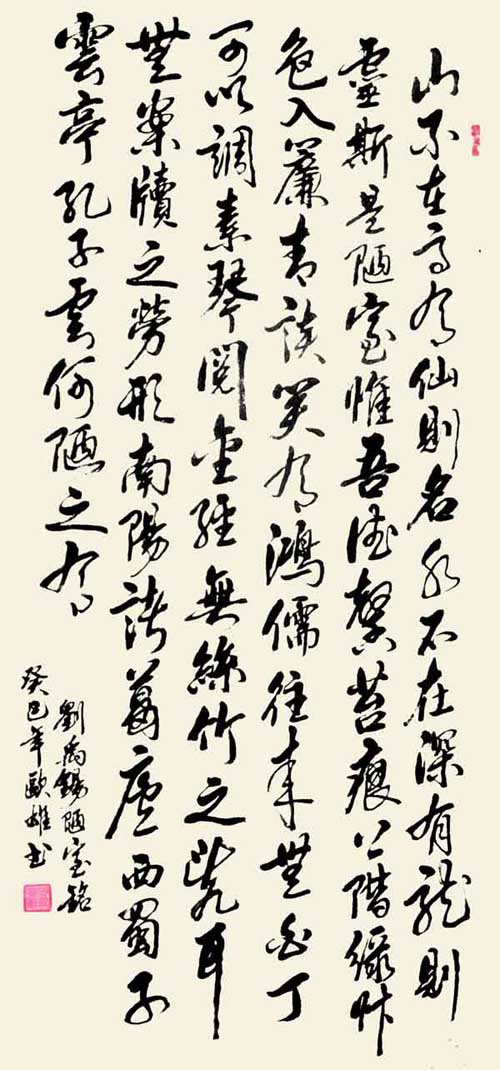 山不在高有仙則名水不在深有龍則
靈斯是陋室惟吾德馨苔痕上階綠艸
色入簾青談笑有鴻儒往來無白丁
可以調素琴閱金經無絲竹之亂耳
無案牘之勞形南陽諸葛廬西蜀子
雲亭孔子雲何陋之有
劉禹錫陋室銘
癸巳年歐雄書